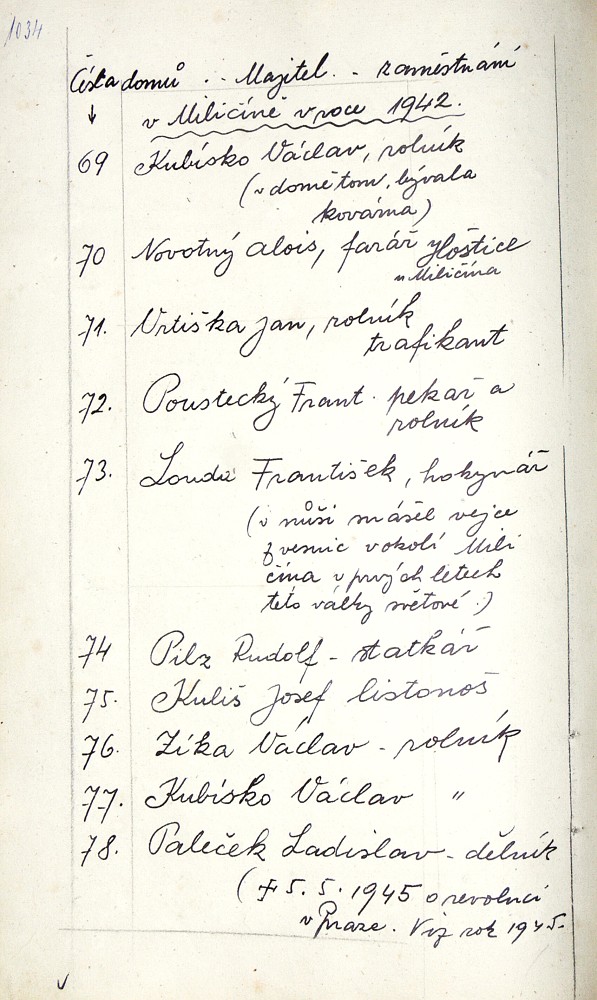 1034
Čísla domů . - Majitel. - zaměstnání
↓ v Miličíně v roce 1942.
69 Kubísko Václav, rolník
(v domě tom, bývala
kovárna)
70 Novotný Alois, farář Hoštice
u Miličína
71. Vrtiška Jan, rolník
trafikant
72. Poustecký Frant. pekař a
rolník
73. Louda František, hokynář
(v nůši snášel vejce
z vesnic v okolí Mili
čína v prvých létech
této války světové.)
74 Pilz Rudolf - statkář
75. Kuliš Josef listonoš
76. Zíka Václav - rolník
77. Kubísko Václav "
78. Paleček Ladislav - dělník
(† 5. 5. 1945 o revoluci
v Praze. Viz rok 1945.